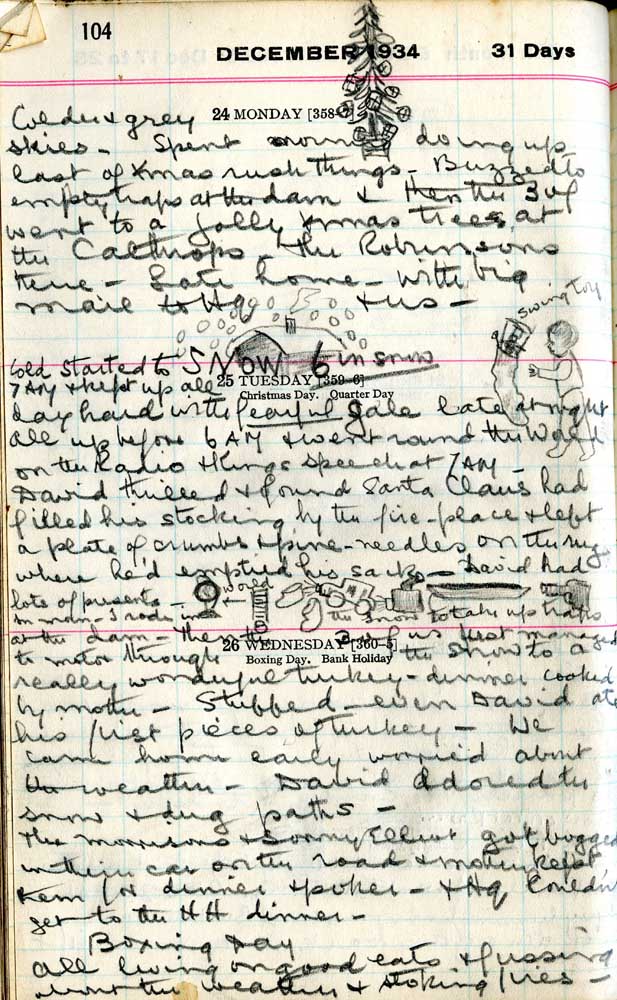 104
DECEMBER 1934 31 Days
24 MONDAY [358-7]
Colder & grey
skies - Spent morning doing up
last of Xmas rush things - Buzzed to
empty traps at the dam & then the 3 of
went to a jolly Xmas tree at
the Calthrops - the Robinsons
there - Late home - with big
mail to Hq & us -
swing toy
Cold started to SNOW 6 in snow
7 AM & kept up all
25 TUESDAY [359-6]
Christmas Day. Quarter Day
day hard with fearful gale late at night
All up before 6 AM & went round the World
on the Radio & Kings Speech at 7 AM -
David thrilled & found Santa Claus had
filled his stocking by the fire-place & left
a plate of crumbs & pine-needles on the rug
where he'd emptied his sack - David had
lots of presents -
world
In morn - I rode in the snow to take up traps
at the dam - Then the of us just managed
26 WEDNESDAY [360-5]
Boxing Day. Bank Holiday
to motor through the snow to a
really wonderful turkey-dinner cooked
by mother - Stuffed - even David ate
his first pieces of turkey - We
came home early worried about
the weather - David adored the
snow & dug paths -
The Morrisons & Sonny Elliott got bogged
in their car on the road & mother kept
them for dinner & poker - & Hq couldn't
get to the HH dinner -
Boxing Day
All living on good eats & fussing
about the weather & stoking fires -